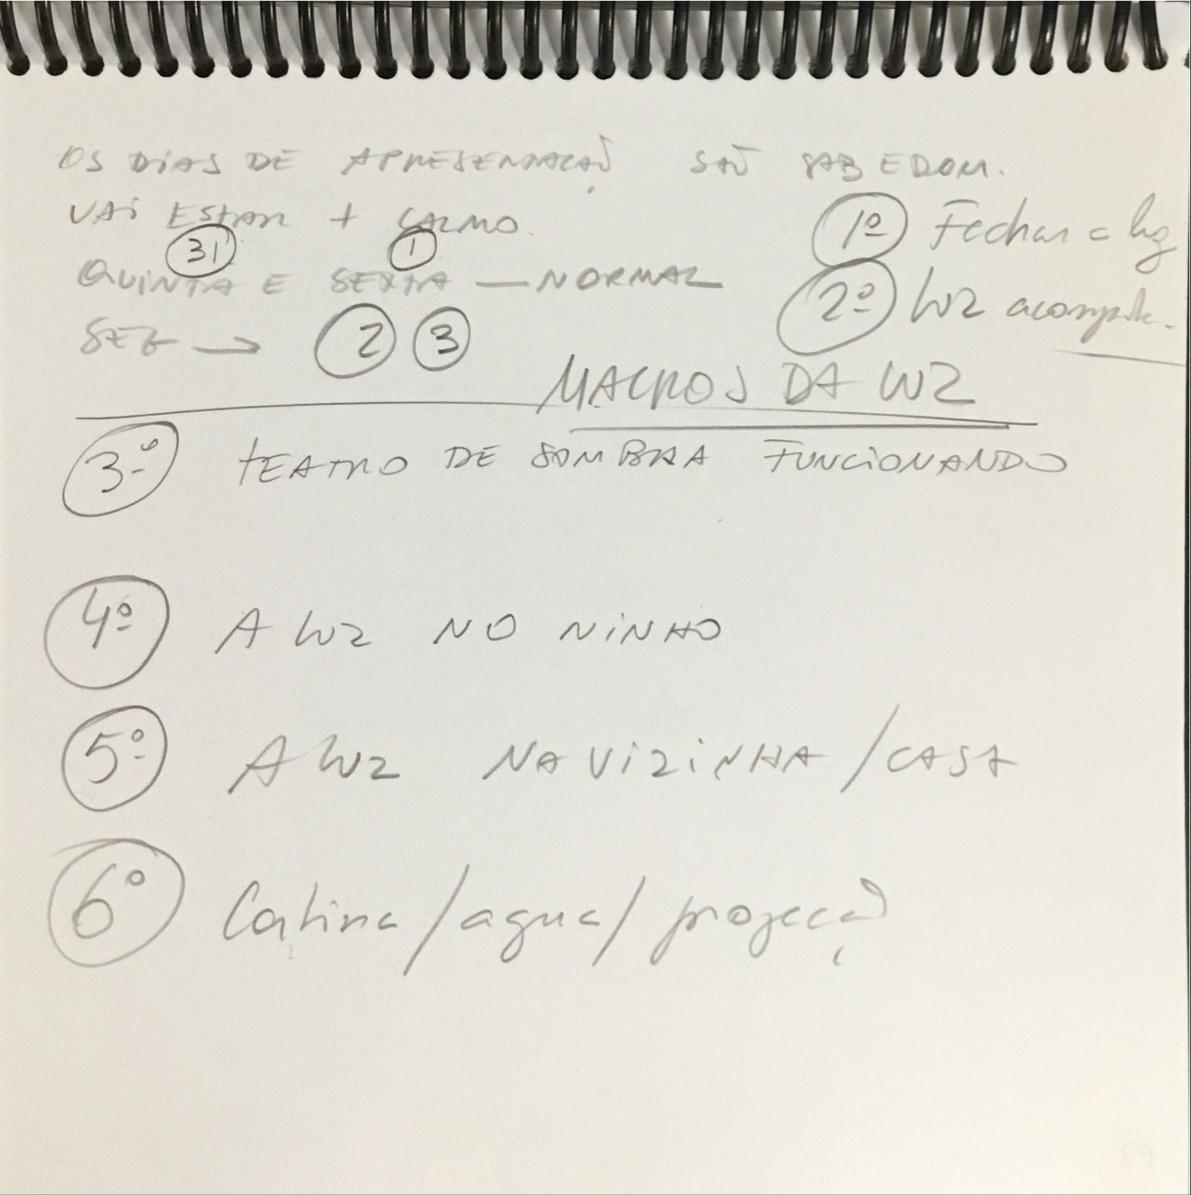 OS DIAS DE APRESENTAÇÃO SÃO SAB E DOM.
VAI ESTAR + CALMO.
31 1
QUINTA E SEXTA — NORMAL
→ 2 3
1º Fechar a luz
2º LUZ
MACROS DA LUZ
3º TEATRO DE SOMBRA FUNCIONANDO
4º A LUZ NO NINHO
5º A LUZ NA VIZINHA / CASA
6º Cortina / agua / projeção